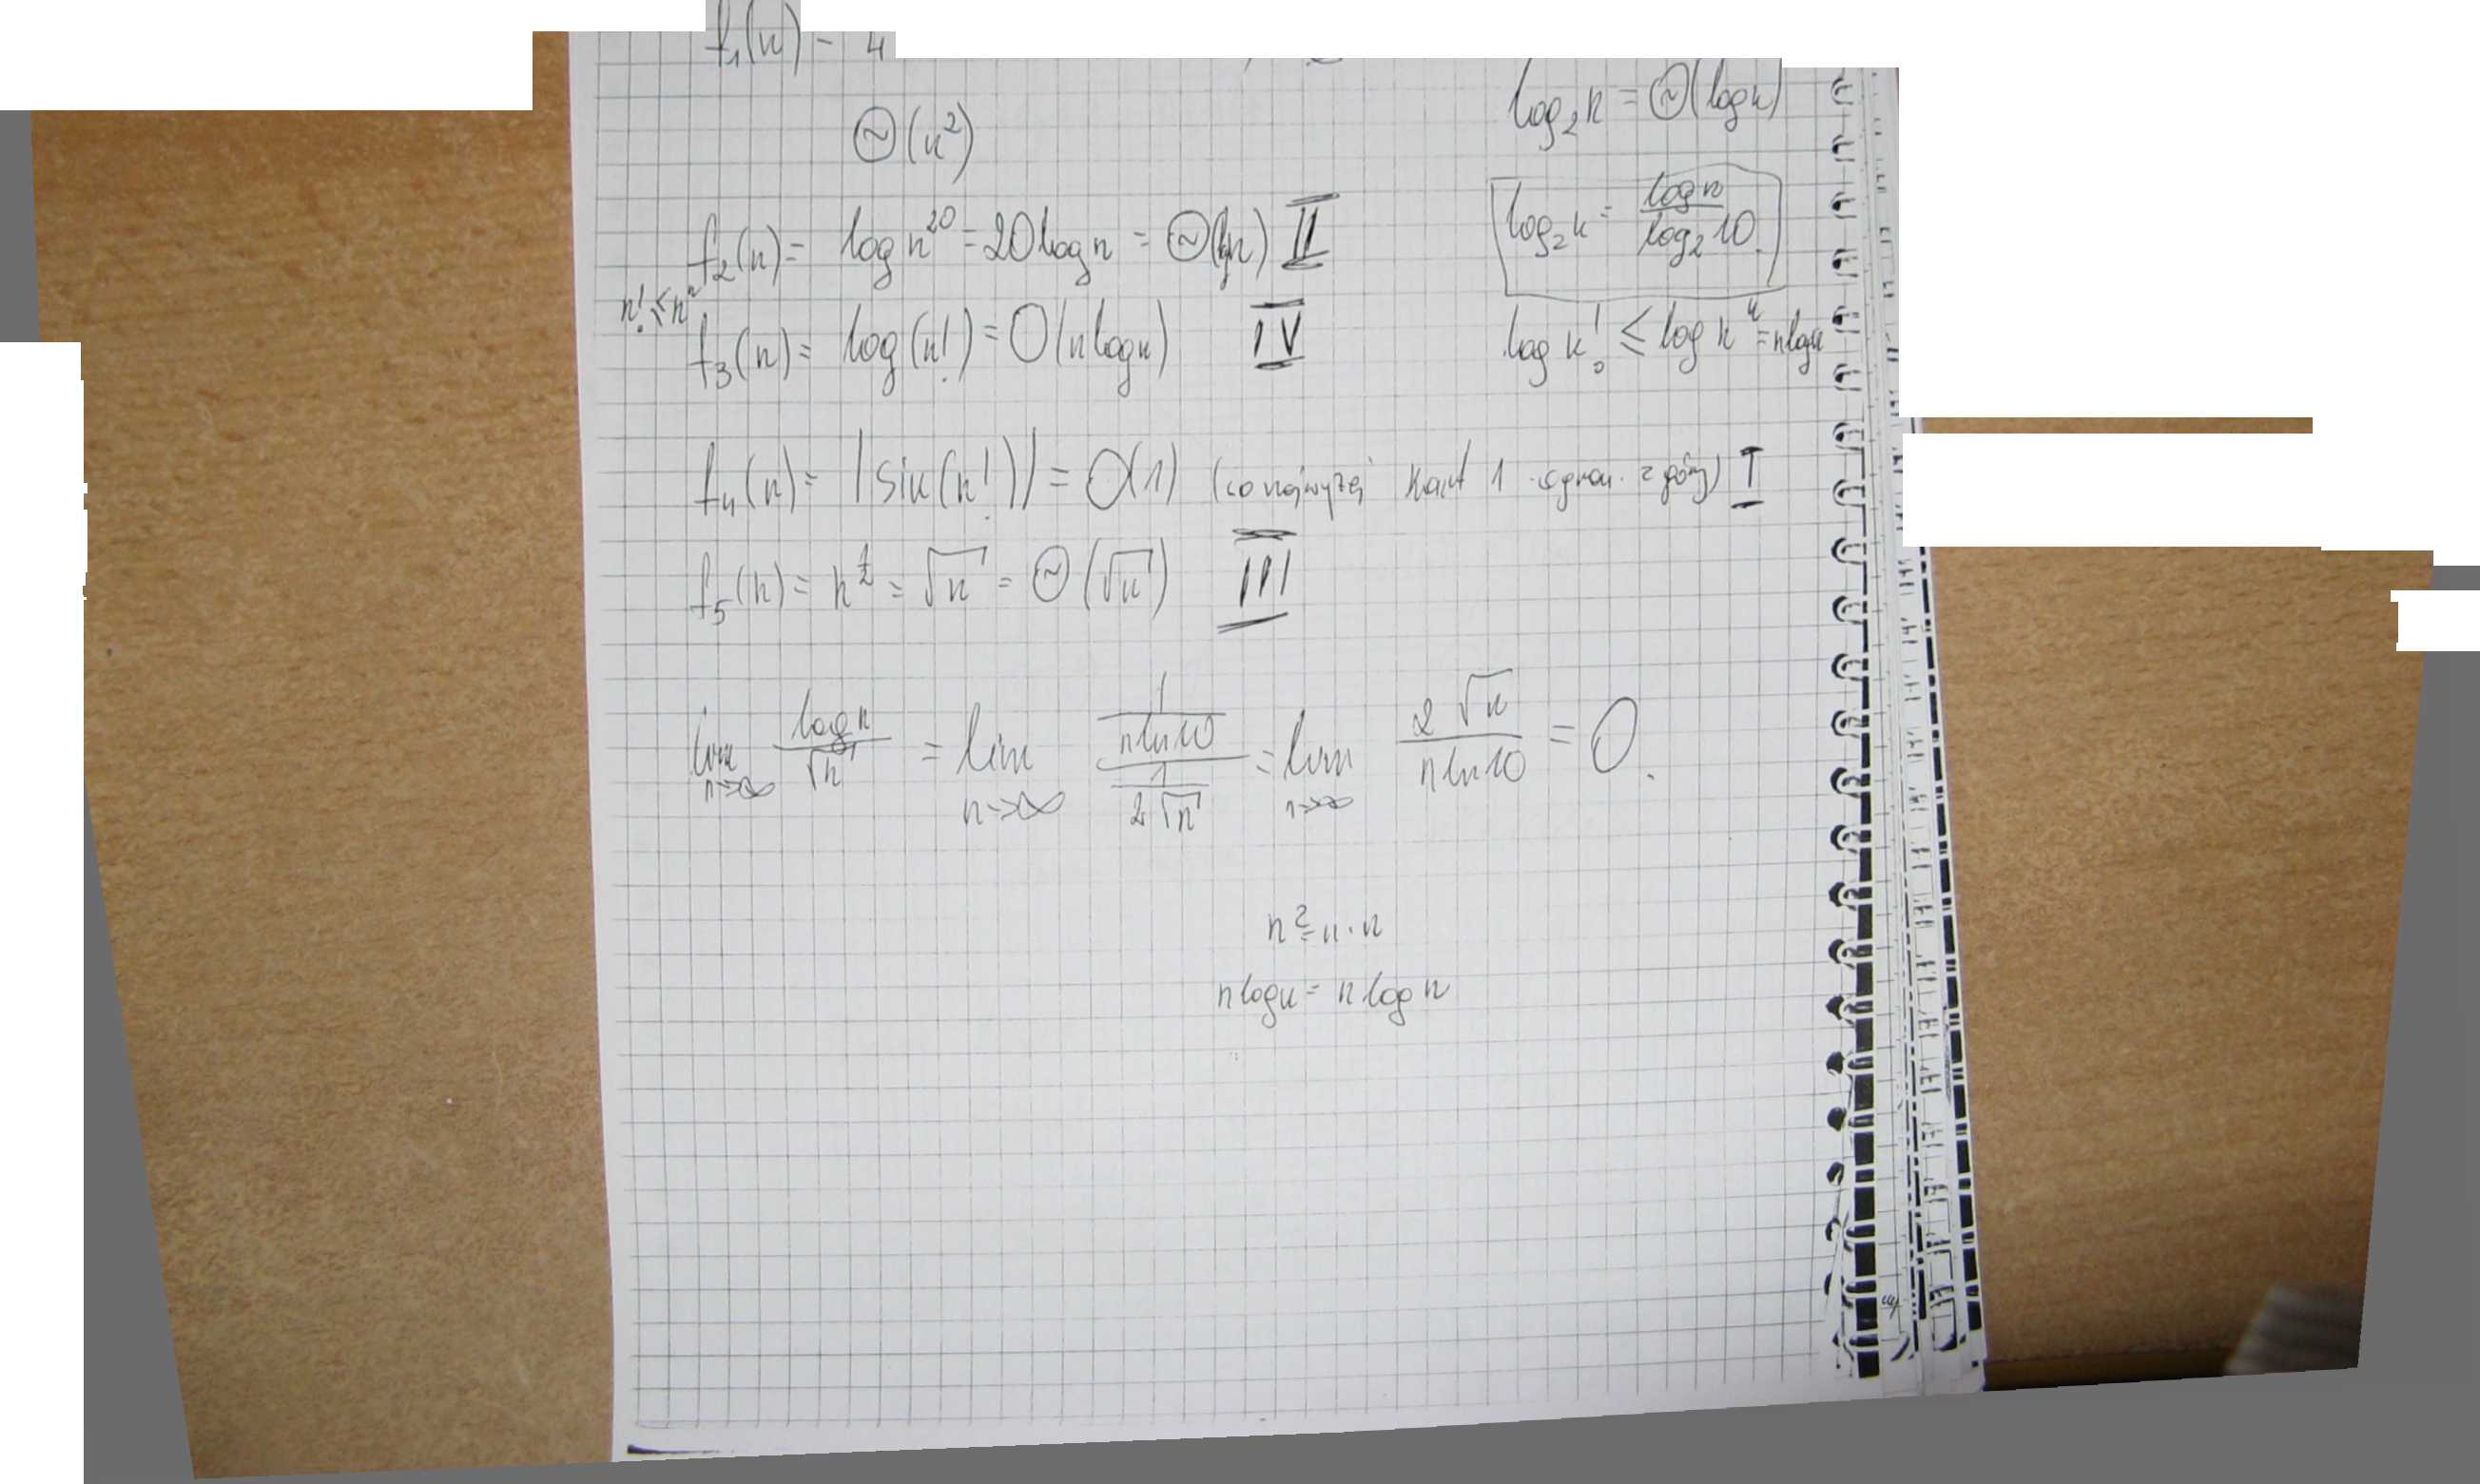 f₁(n) = 4
Θ(n²)
log₂n = Θ(log n)
f₂(n) = log n²⁰ = 20 log n = Θ(lgn) II
log₂n = log n / log₂10
n! ≤ nⁿ
f₃(n) = log(n!) = O(n log n) IV
log n! ≤ log nⁿ = n log n
f₄(n) = |sin(n!)| = O(1) (co najwyżej 1 ogran. z góry) I
f₅(n) = n^½ = √n = Θ(√n) III
lim n→∞ log n / √n = lim n→∞ (1 / (n ln 10)) / (1 / (2√n)) = lim n→∞ 2√n / (n ln 10) = 0.
n² = n · n
n log n = n log n